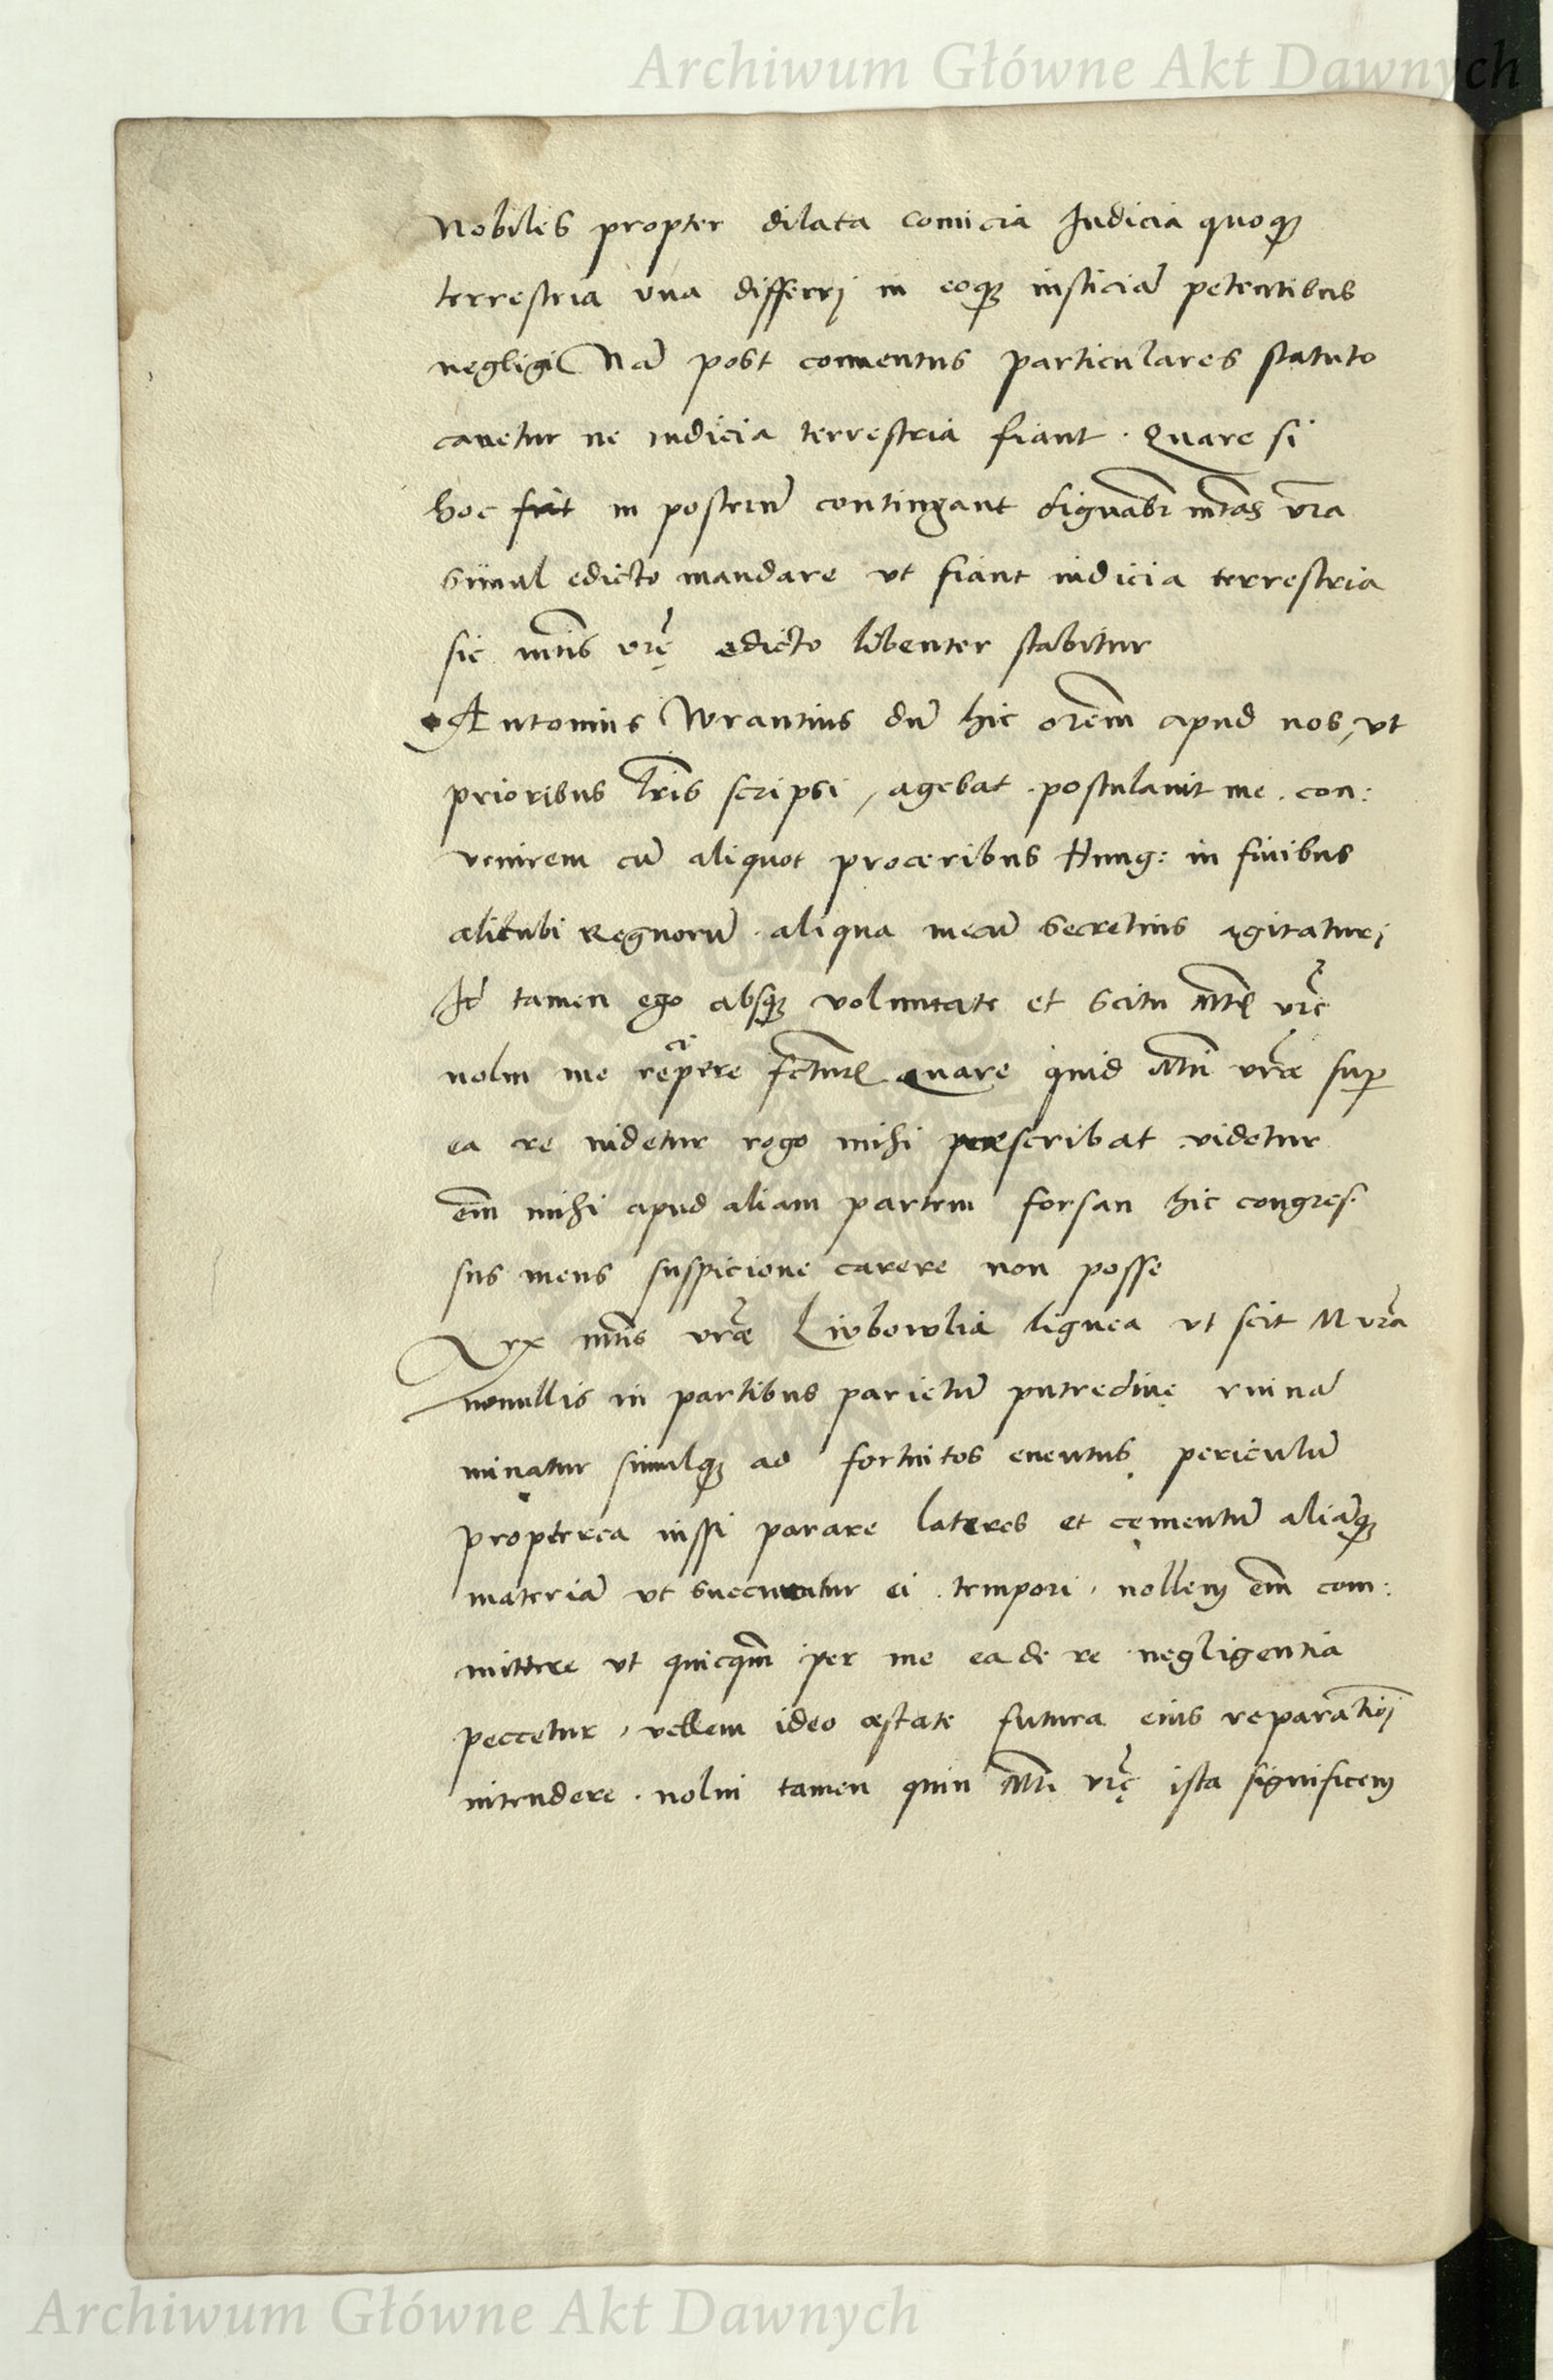 Archiwum Główne Akt Dawnych
Nobiles propter dilata comicia Judicia quoq3
terrestria vna differrj in eoq3 iusticiā petentibus
negligi Nā post conuentus particulares statuto
cauetur ne iudicia terrestria fiant . Quare si
hoc in posterū contingant dignabr̄ mtās vrā
simul edicto mandare vt fiant iudicia terrestria
sic mtīs vrę̄ edicto libenter stabitur
Antonius Wrantius dū hic orēm apud nos, vt
prioribus lrīs scripsi, agebat . postulauit me . con:
venirem cū aliquot proceribus Hung: in finibus
alicubi Regnorū . aliqua mecū secretius agitaturj
Id tamen ego absq3 voluntate et scitu Mtī vrē
nolui me Quare quid Mti vrāe sup
ea re uidetur rogo mihi praescribat videtur
em̄ mihi apud aliam partem forsan hic congres-
sus meus suspicione carere non posse
Arx mtīs vrāe Liubowlia lignea vt scit M vrā
nonullis in partibus parietū putredine ruinā
minatur simulq3 ad fortuitos euentus periculū
propterea iussi parare lateres et cęmentū aliāq3
materiā vt ei tempori, nollem em̄ com:
mittere vt quicq̄m per me ea de re negligentia
peccetur, vellem ideo aestate futura eius reparationj
intendere . nolui tamen quin Mti vrę̄ ista significem
Archiwum Główne Akt Dawnych